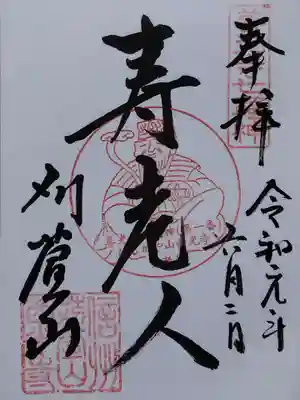 奉拝
令和元年
六月二日
寿老人
刈萱山